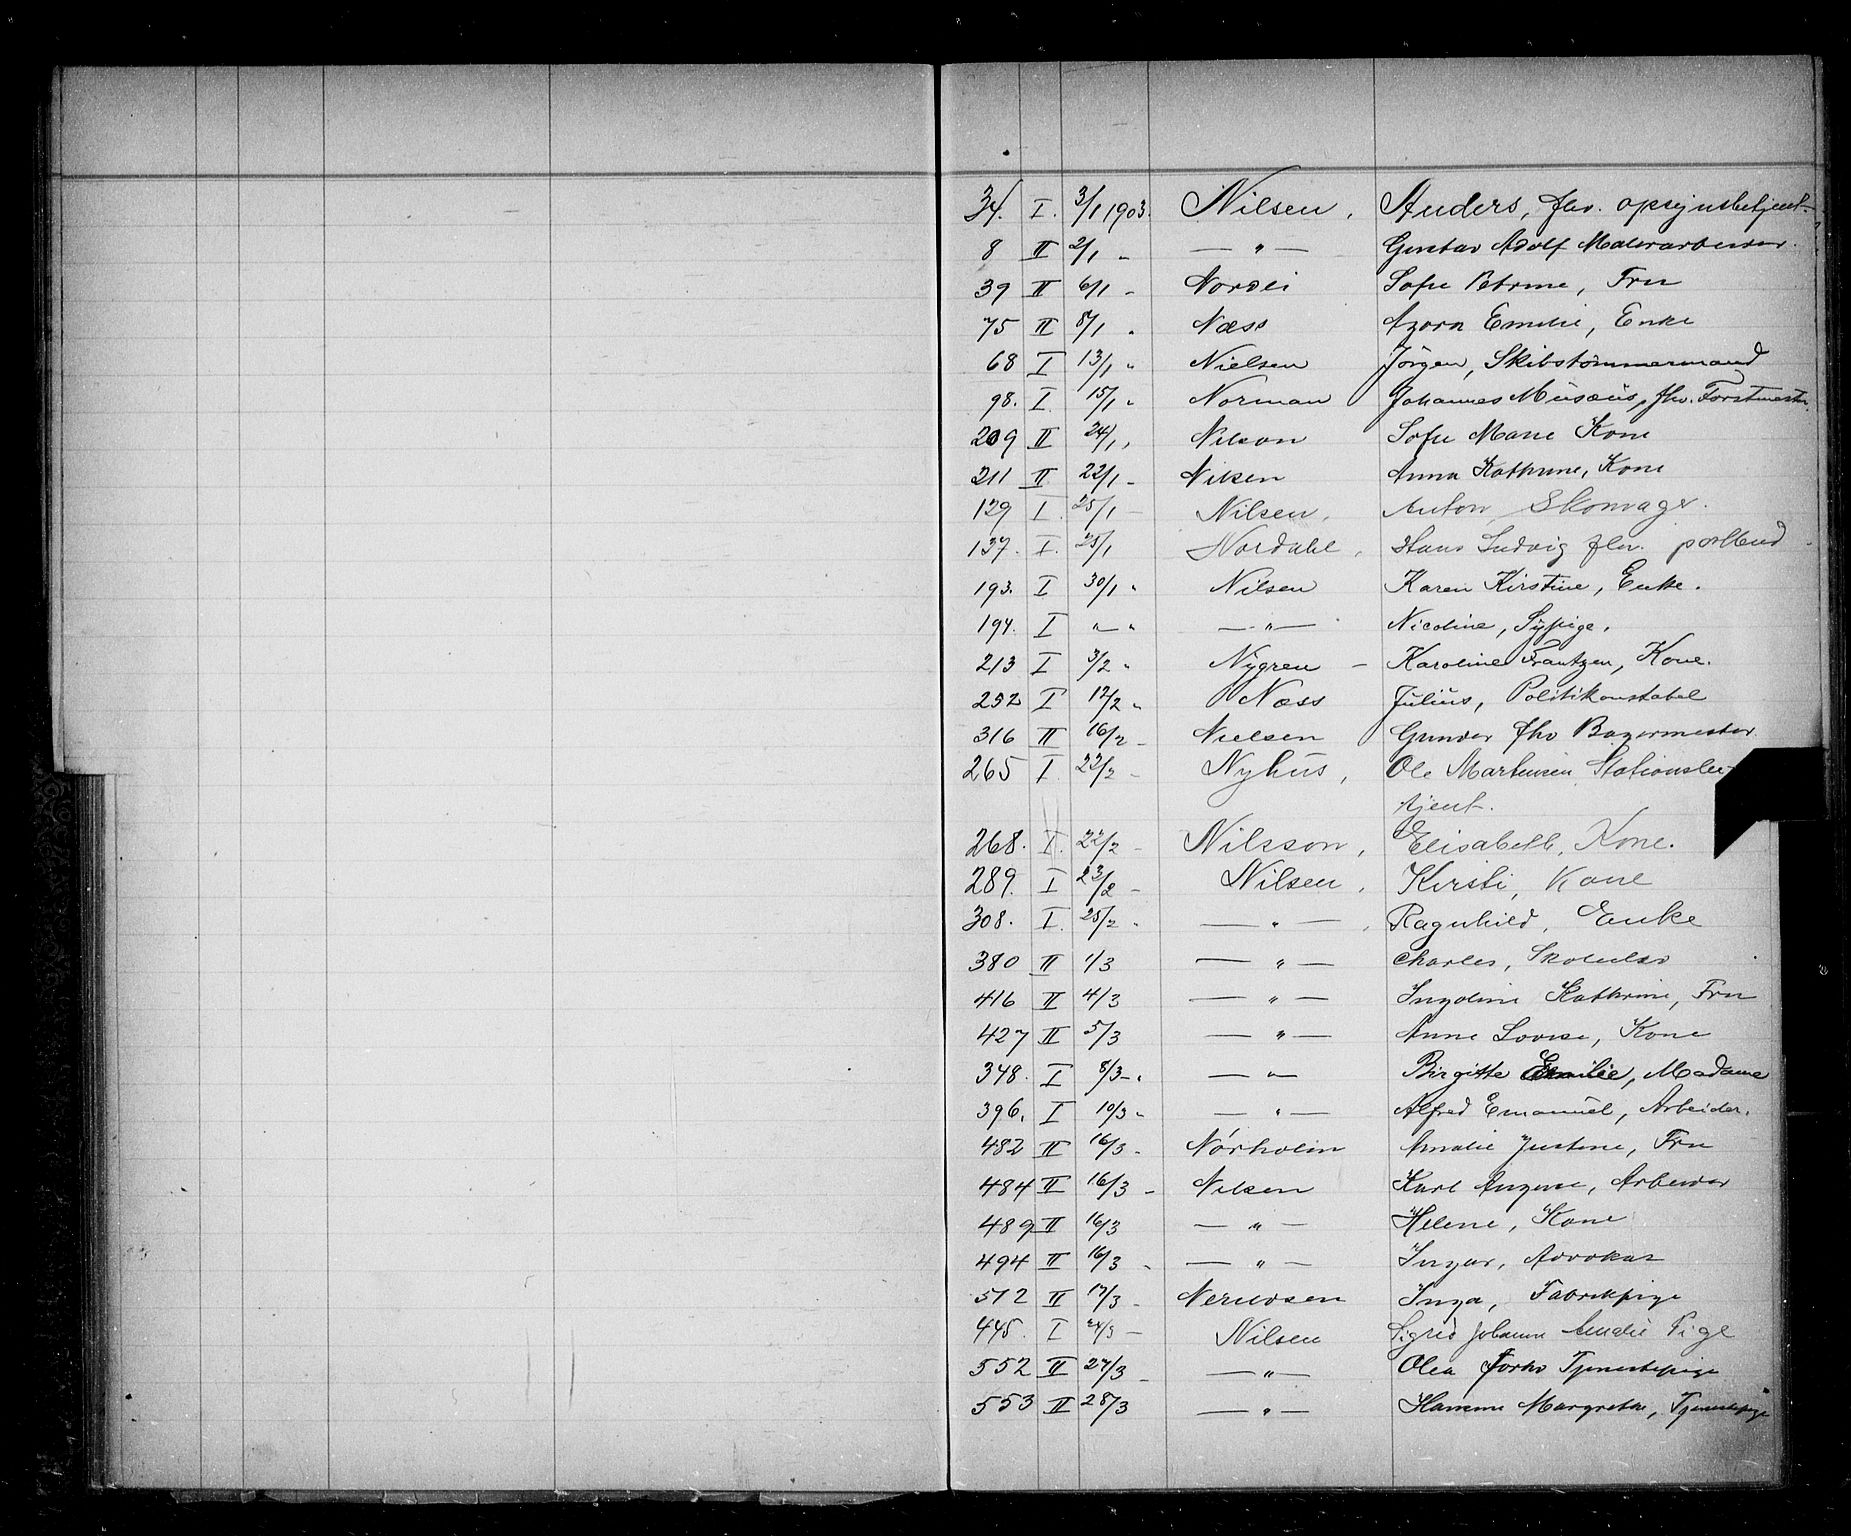 34. I. 3/1 1903. Nilsen, Anders, fhv. opsynsbetjent.
8 II 2/1 " — " — Gustav Adolf Malerarbeider.
39 II 6/1 - Nordli Sofie Petrine, Fru
75 II 8/1 " Næss Azora Emilie, Enke
68 I 13/1 " Nielsen Jörgen, Skibstömmermand
98. I. 15/1 " Norman Johannes Musæus, fhv. Forstmester.
209 II 24/1 " Nilson Sofie Marie Kone
211 II 22/1 - Nilsen Anna Kathrine, Kone
129 I. 25/1 — Nilsen, Anton, Skomager.
137. I. 25/1 Nordahl, Hans Ludvig fhv. postbud
193. I 30/1 " Nilsen Karen Kirstine, Enke.
194. I " — " — " — Nicoline, Sypige.
213 I 3/2 " Nygren — Karoline Frantzen, Kone.
252 I 12/2 " Næss Julius, Politikonstabel
316 II 16/2 - Nielsen Gunder fhv Bagermester
265 I. 22/2 - Nyhus, Ole Martinsen Stationsbe-
tjent.
268. I. 22/2 - Nilsson, Elisabeth, Kone.
289. I 23/2 - Nilsen, Kirsti, Kone
308. I. 25/2 " — " — Ragnhild, Enke
380 II 1/3 — " — Charles, Skoleelev
416 II 4/3 — " — Ingoline Kathrine, Fru
427 II 5/3 — " — Anne Lovise, Kone
348. I 8/3 - " — " — Birgitte Emilie, Madame
396. I 10/3 " — " — Alfred Emanuel, Arbeider.
482 II 16/3 - Nörholm Amalie Justine, Fru
484 II 16/3 - Nilsen Karl Ingvar, Arbeider
489 II 16/3 — " — Helene, Kone
494 II 16/3 " — " — Ingar, Advokat
512 II 17/3 - Nerudsen Inga, Fabrikpige
445. I 24/3 — Nilsen Sigrid Johanne Amalie Pige
552 II 27/3 - — " — Olea Tjenestepige
553 II 28/3 — " — Hanna Margrethe, Tjenestepige